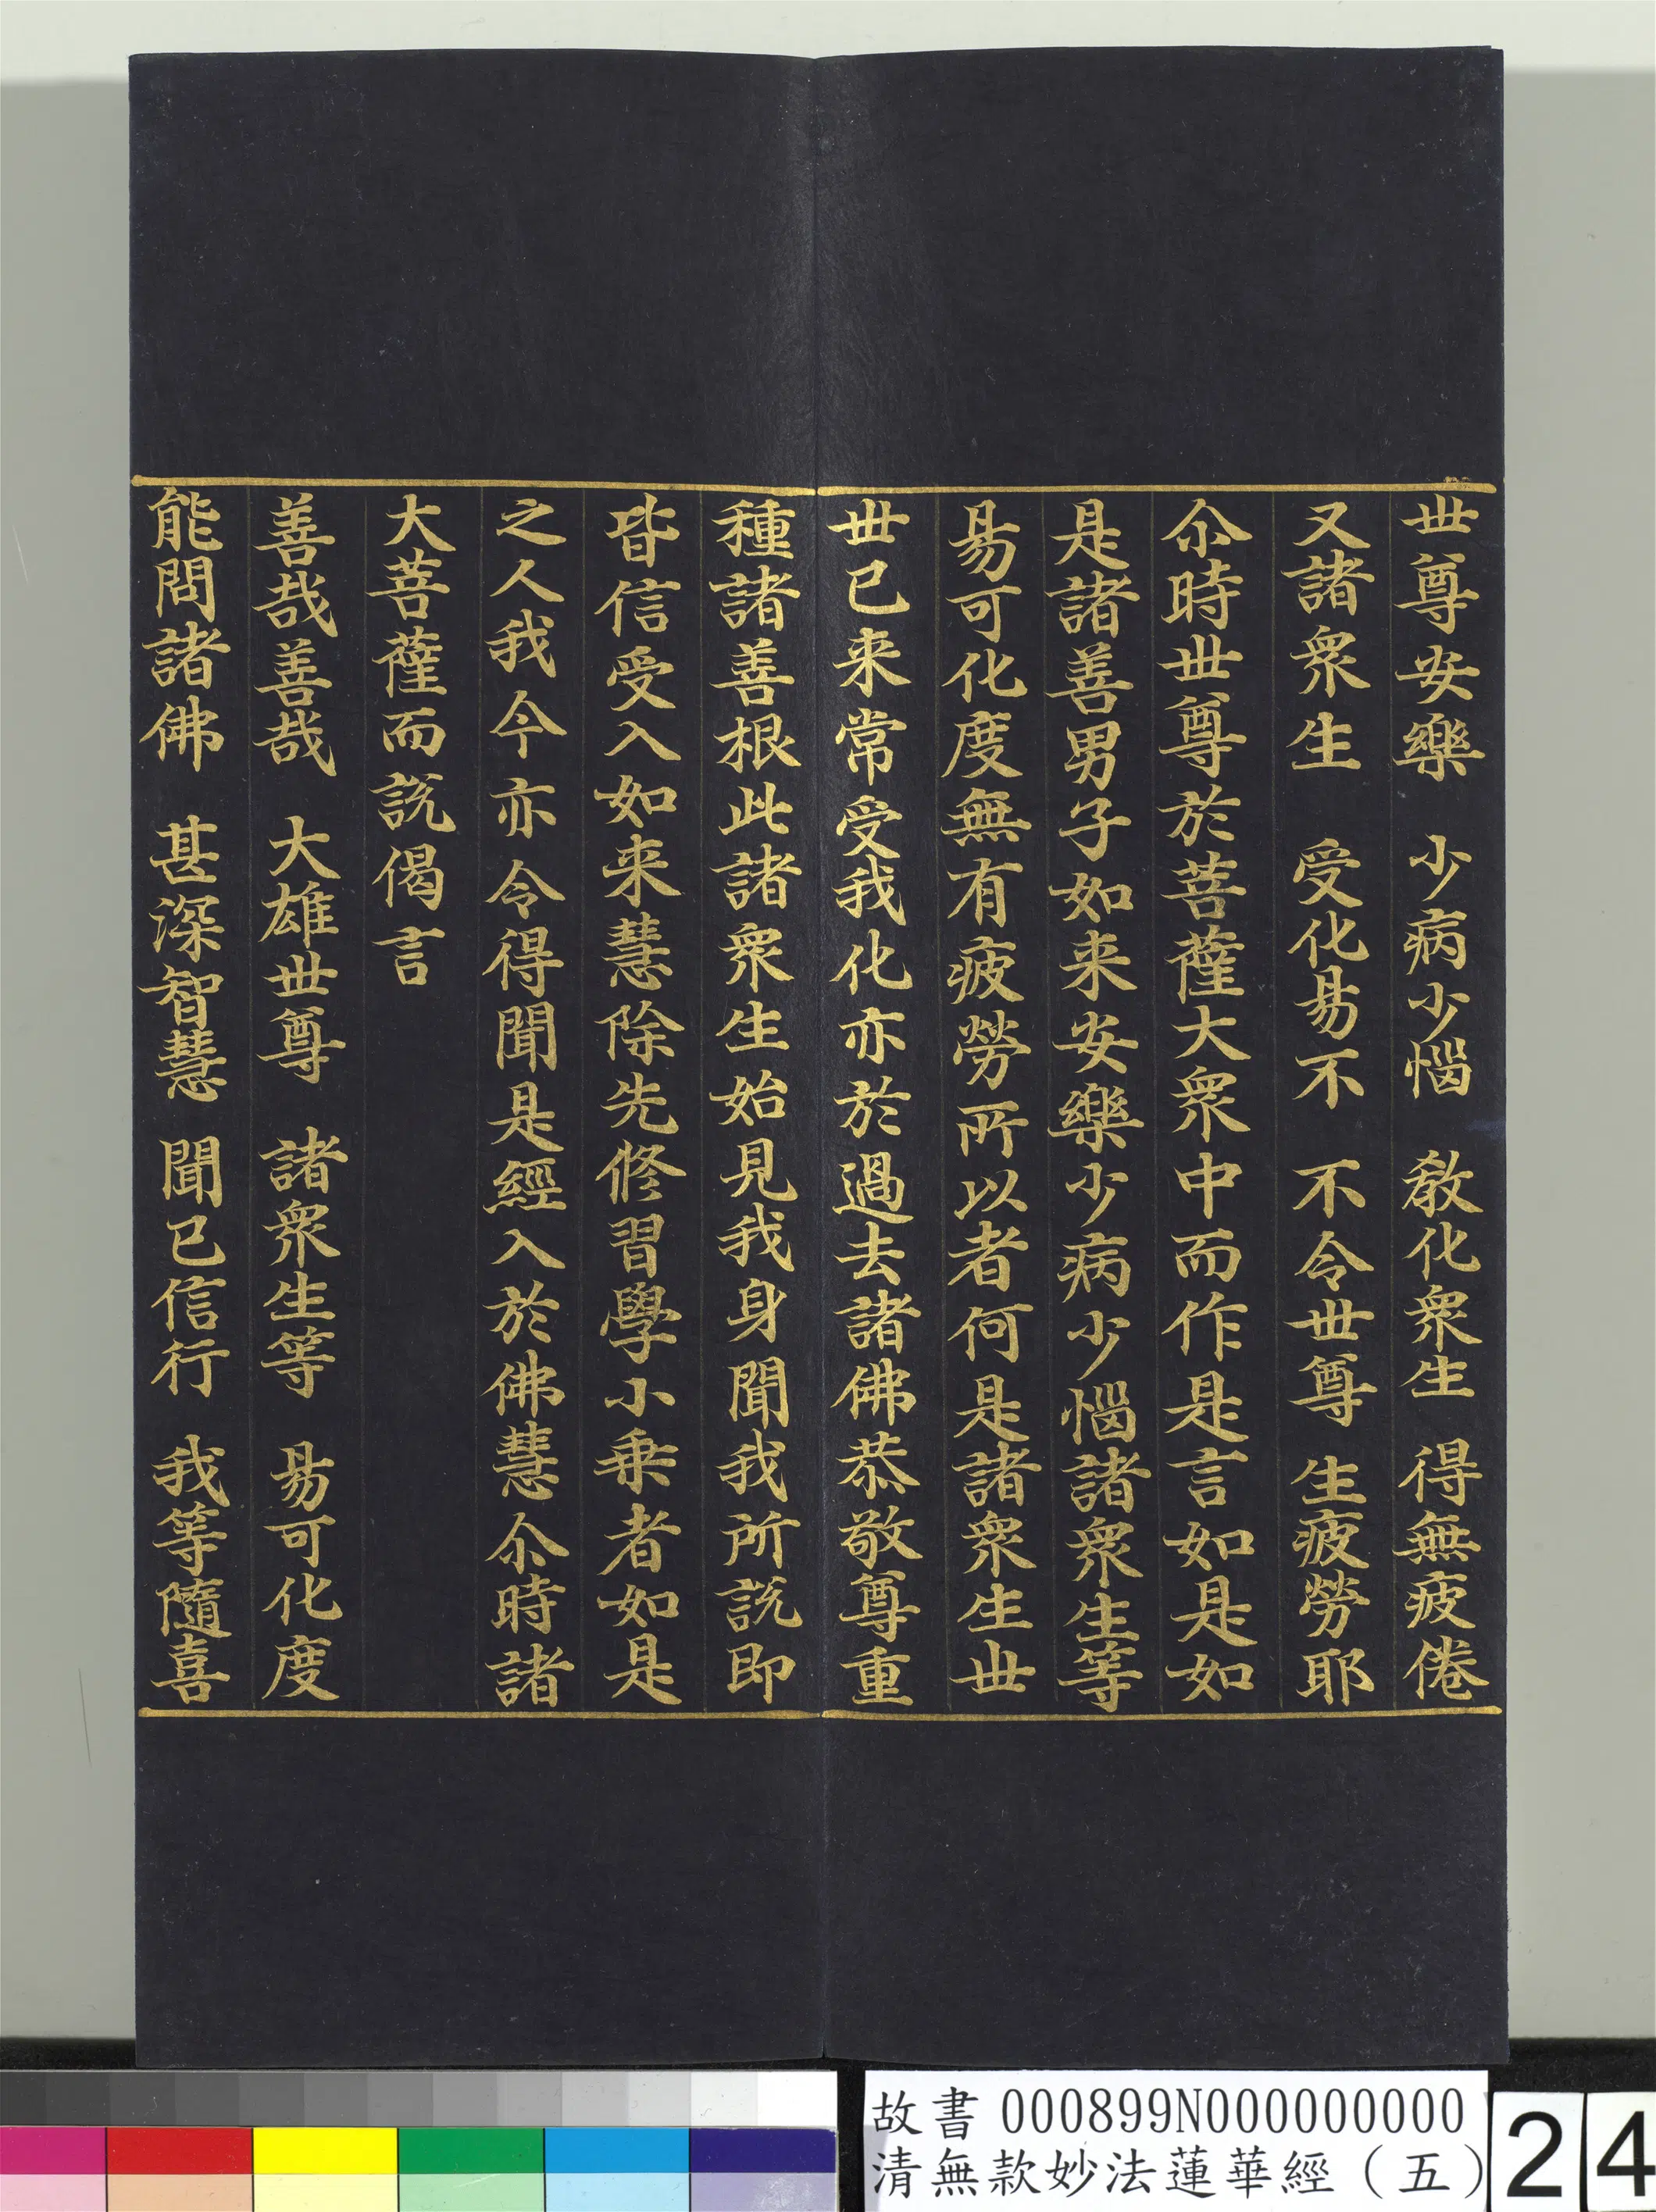 世尊安樂　少病少惱　教化衆生　得無疲倦
又諸衆生　受化易不　不令世尊　生疲勞耶
尒時世尊於菩薩大衆中而作是言如是如
是諸善男子如来安樂少病少惱諸衆生等
易可化度無有疲勞所以者何是諸衆生世
世已来常受我化亦於過去諸佛恭敬尊重
種諸善根此諸衆生始見我身聞我所説即
皆信受入如来慧除先修習學小乗者如是
之人我今亦令得聞是經入於佛慧尒時諸
大菩薩而説偈言
善哉善哉　大雄世尊　諸衆生等　易可化度
能問諸佛　甚深智慧　聞已信行　我等隨喜
故書 000899N000000000
清無款妙法蓮華經（五）
24